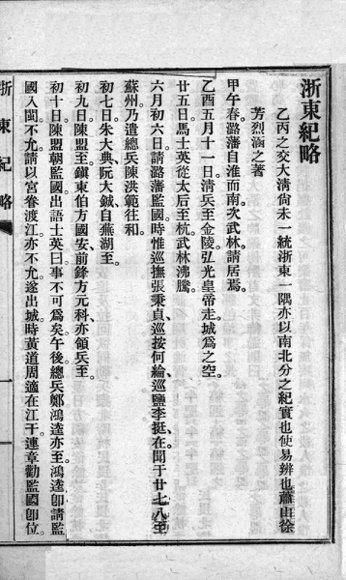 浙東紀略
乙丙之交大淸尙未一統浙東一隅亦以南北分之紀實也使易辨也蕭山徐
芳烈涵之著
甲午春潞藩自淮而南次武林請居焉
乙酉五月十一日淸兵至金陵弘光皇帝走城爲之空
廿五日馬士英從太后至杭武林沸騰
六月初六日請潞藩監國時惟巡撫張秉貞巡按何綸巡鹽李挺在聞于廿七八至
蘇州乃遣總兵陳洪範往和
初七日朱大典阮大鋮自蕪湖至
初九日陳盟至鎭東伯方國安前鋒方元科亦領兵至
初十日陳盟朝監國出語士英曰事不可爲矣午後總兵鄭鴻逵亦至鴻逵卽請監
國入閩不允請以宮眷渡江亦不允遂出城時黃道周適在江干連章勸監國卽位
浙東紀略
一